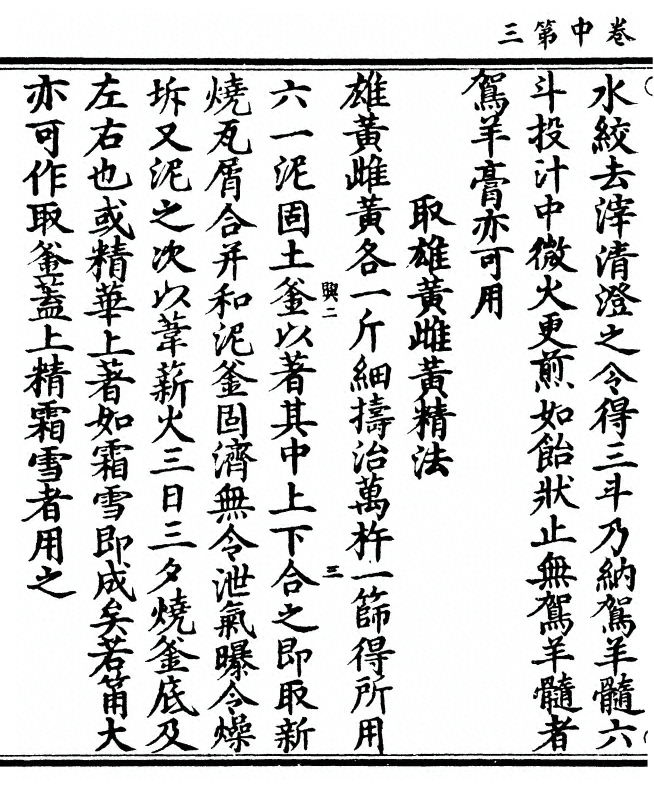 卷中第三
水絞去滓清澄之令得三斗乃納鴽羊髓六
斗投汁中微火更煎如飴狀止無鴽羊髓者
鴽羊膏亦可用
取雄黃雌黃精法
雄黃雌黃各一斤細擣治萬杵一篩得所用
興二
三
六一泥固土釜以著其中上下合之即取新
燒瓦屑合并和泥釜固濟無令泄氣曝令燥
坼又泥之次以葦薪火三日三夕燒釜底及
左右也或精華上著如霜雪即成矣若筩大
亦可作取釜蓋上精霜雪者用之